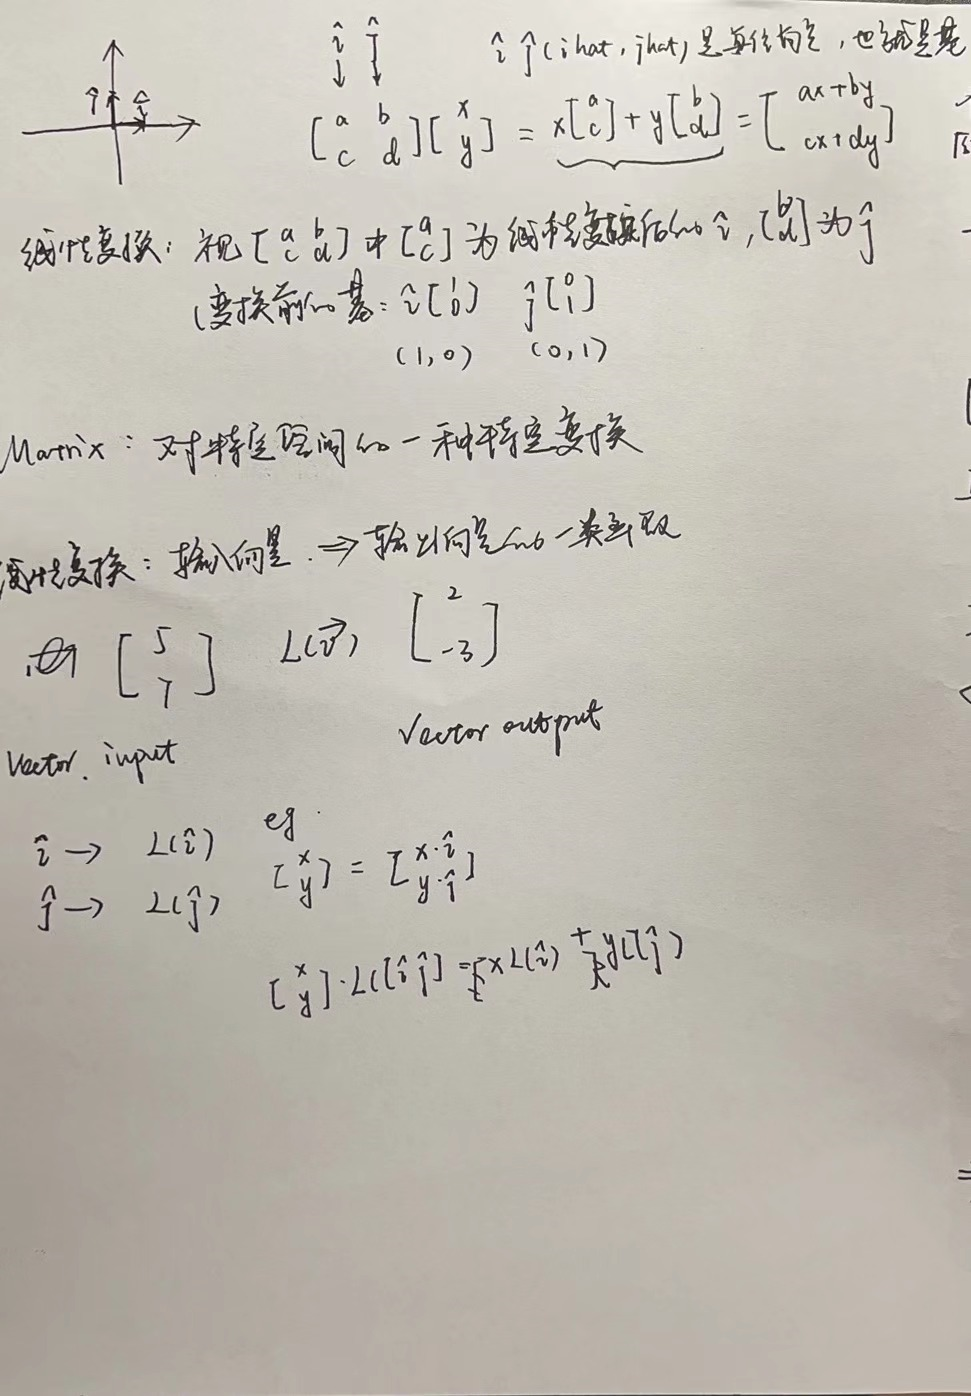 î ĵ (i hat, j hat) 是单位向量, 也就是基
î ĵ
↓ ↓
[a b; c d][x; y] = x[a; c] + y[b; d] = [ax+by; cx+dy]
ĵ î
线性变换: 视[a b; c d]中[a; c]为线性变换后的 î, [b; d]为 ĵ
(变换前的基: î[1; 0] ĵ[0; 1]
(1,0) (0,1)
Matrix: 对特定空间的一种特定变换
线性变换: 输入向量 ⇒ 输出向量的一类函数
[5; 7] L(v⃗) [2; -3]
Vector input Vector output
î → L(î) eg.
ĵ → L(ĵ) [x; y] = [x·î; y·ĵ]
[x; y]·L([î ĵ] = xL(î) + yL(ĵ)